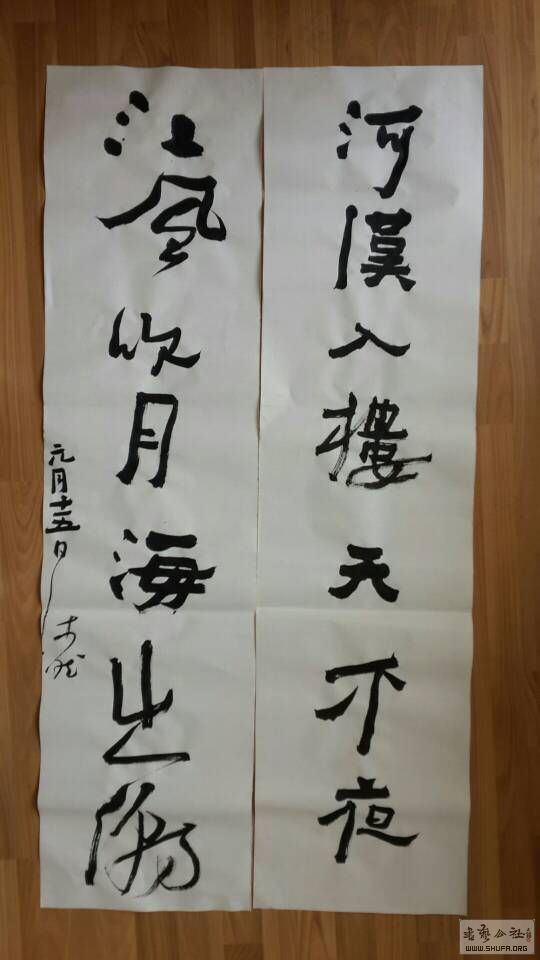 河漢入樓天不夜
江風吹月海
元月十五日
書藝公社
WWW.SHUFA.ORG